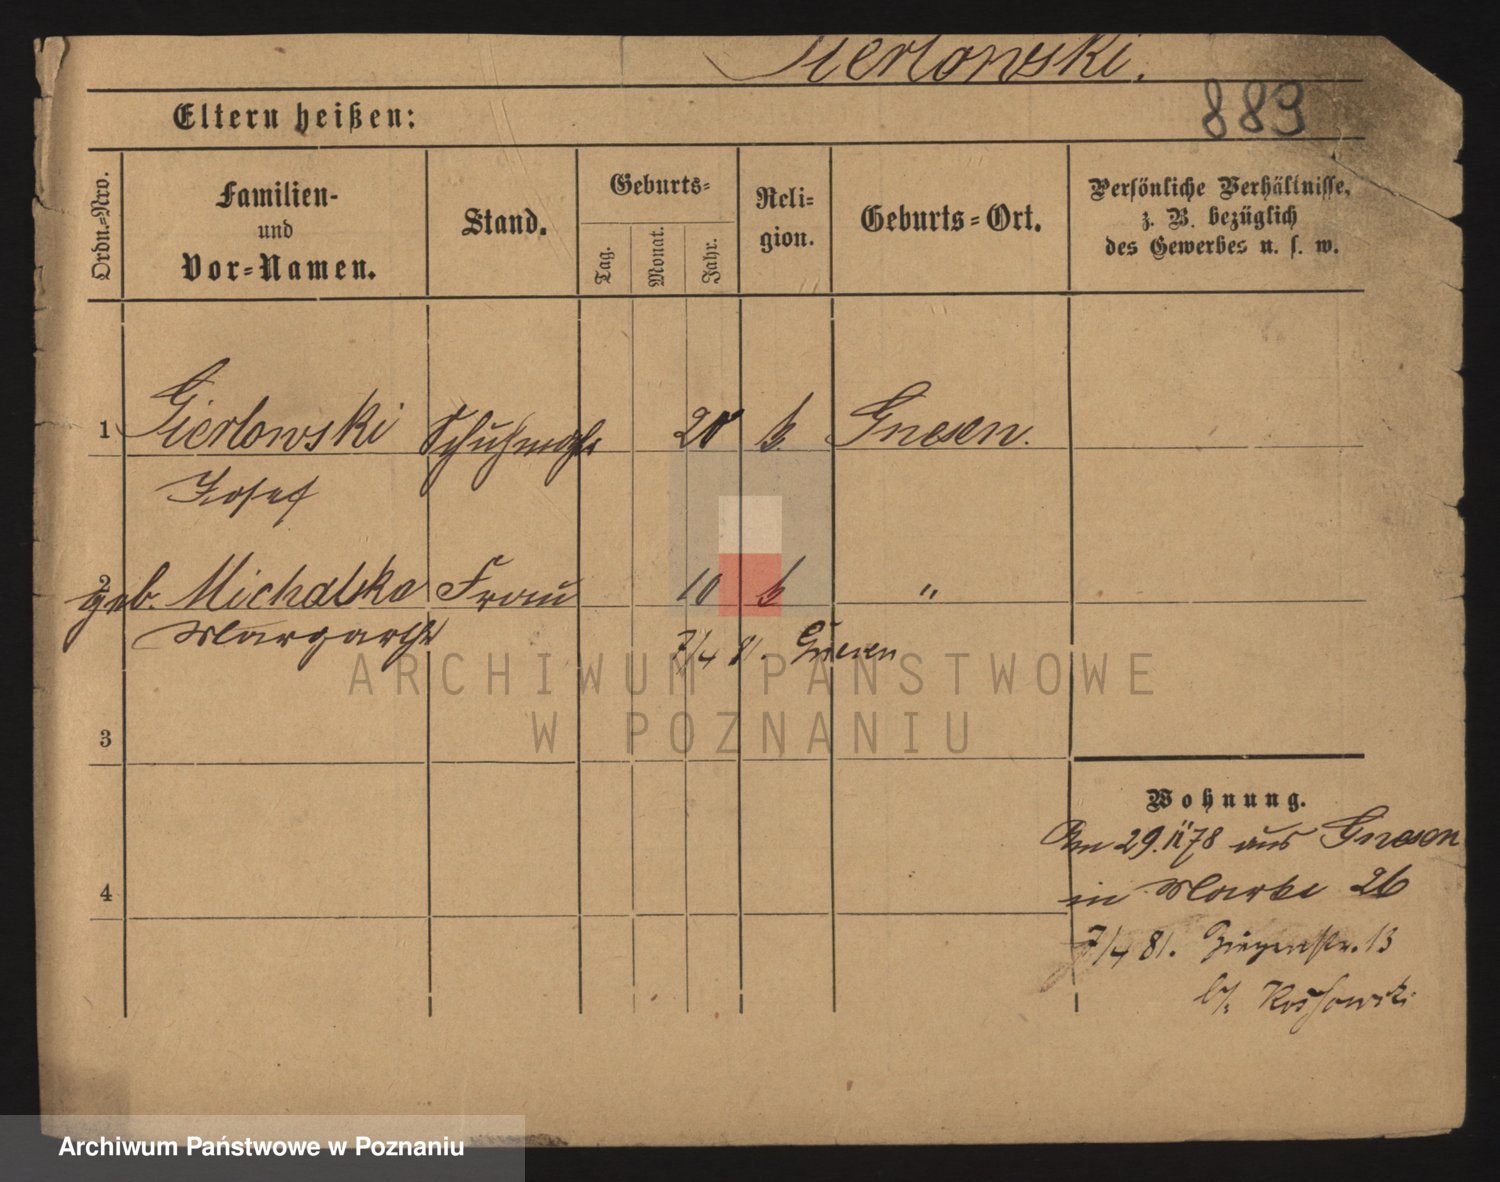 Gierlowski.
883
Eltern heißen:
Ordn.=Nro.
Familien-
und
Vor=Namen.
Stand.
Geburts=
Tag.
Monat.
Jahr.
Reli-
gion.
Geburts=Ort.
Persönliche Verhältnisse,
z. B. bezüglich
des Gewerbes u. s. w.
1 Gierlowski Schuhmachr 20 k. Gnesen.
Josef
2 geb. Michalska Frau 10 k "
Margarethe
7/4 81. Gnesen
ARCHIWUM PAŃSTWOWE
W POZNANIU
3
Wohnung.
Am 29.11 78 aus Gnesen
in Markt 26
4
7/4 81. Ziegenstr. 13
b/
Archiwum Państwowe w Poznaniu